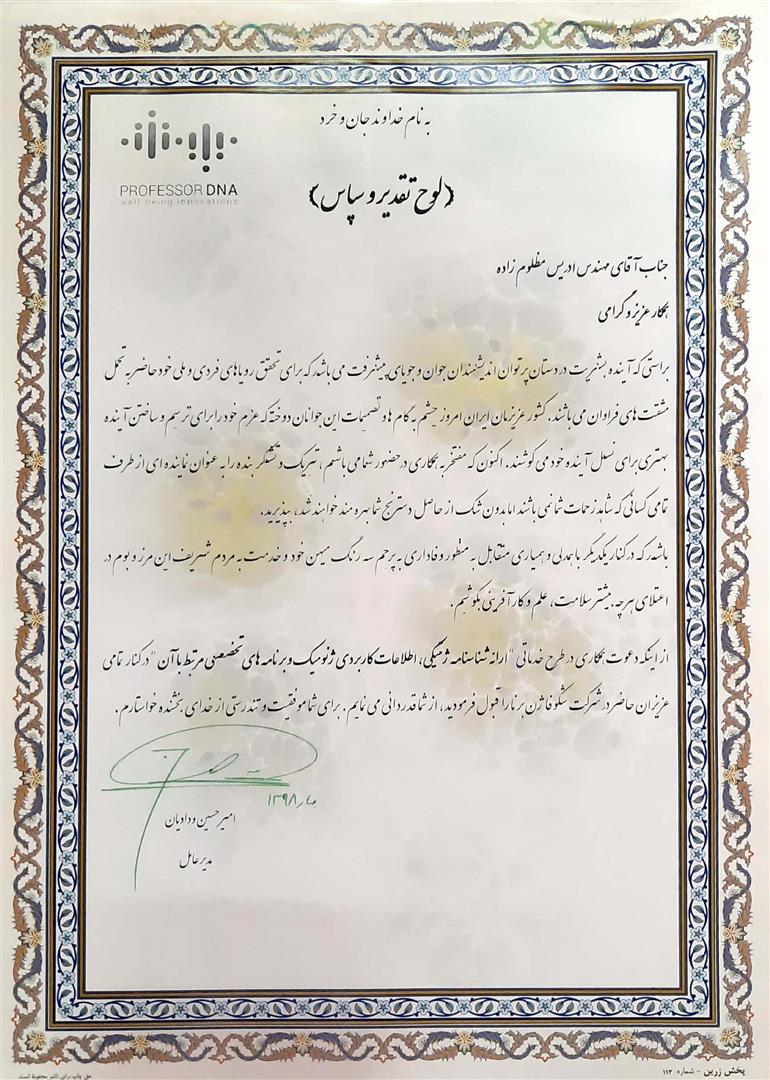 به نام خداوند جان و خرد
PROFESSOR DNA
well being innovations
(لوح تقدیر و سپاس)
جناب آقای مهندس ادریس مظلوم زاده
همکار عزیز و گرامی
براستی که آینده بشریت در دستان پرتوان اندیشمندان جوان و جویای پیشرفت می باشد که برای تحقق رویاهای فردی و ملی خود حاضر به تحمل
مشقت های فراوان می باشند. کشور عزیزمان ایران امروز چشم به گام ها و تصمیمات این جوانان دوخته که عزم خود را برای ترسیم و ساختن آینده
بهتری برای نسل آینده خود می کوشند. اکنون که مفتخر به همکاری در حضور شما می باشم، تبریک و تشکر بنده را به عنوان نماینده ای از طرف
تمامی کسانی که شاهد زحمات شما نمی باشند اما بدون شک از حاصل دسترنج شما بهره مند خواهند شد، بپذیرید.
باشد که در کنار یکدیگر با همدلی و همیاری متقابل به منظور وفاداری به پرچم سه رنگ میهن خود و خدمت به مردم شریف این مرز و بوم در
اعتلای هرچه بیشتر سلامت، علم و کارآفرینی بکوشیم.
از اینکه دعوت همکاری در طرح خدماتی "ارائه شناسنامه ژنتیکی، اطلاعات کاربردی ژنومیک و برنامه های تخصصی مرتبط با آن" در کنار تمامی
عزیزان حاضر در شرکت شکوفا ژن برنا را قبول فرمودید، از شما قدردانی می نمایم. برای شما موفقیت و تندرستی از خدای بخشنده خواستارم.
بهار ۱۳۹۸
امیرحسین ودادیان
مدیر عامل
پخش زرین - شماره ۱۱۳
حق چاپ برای ناشر محفوظ است